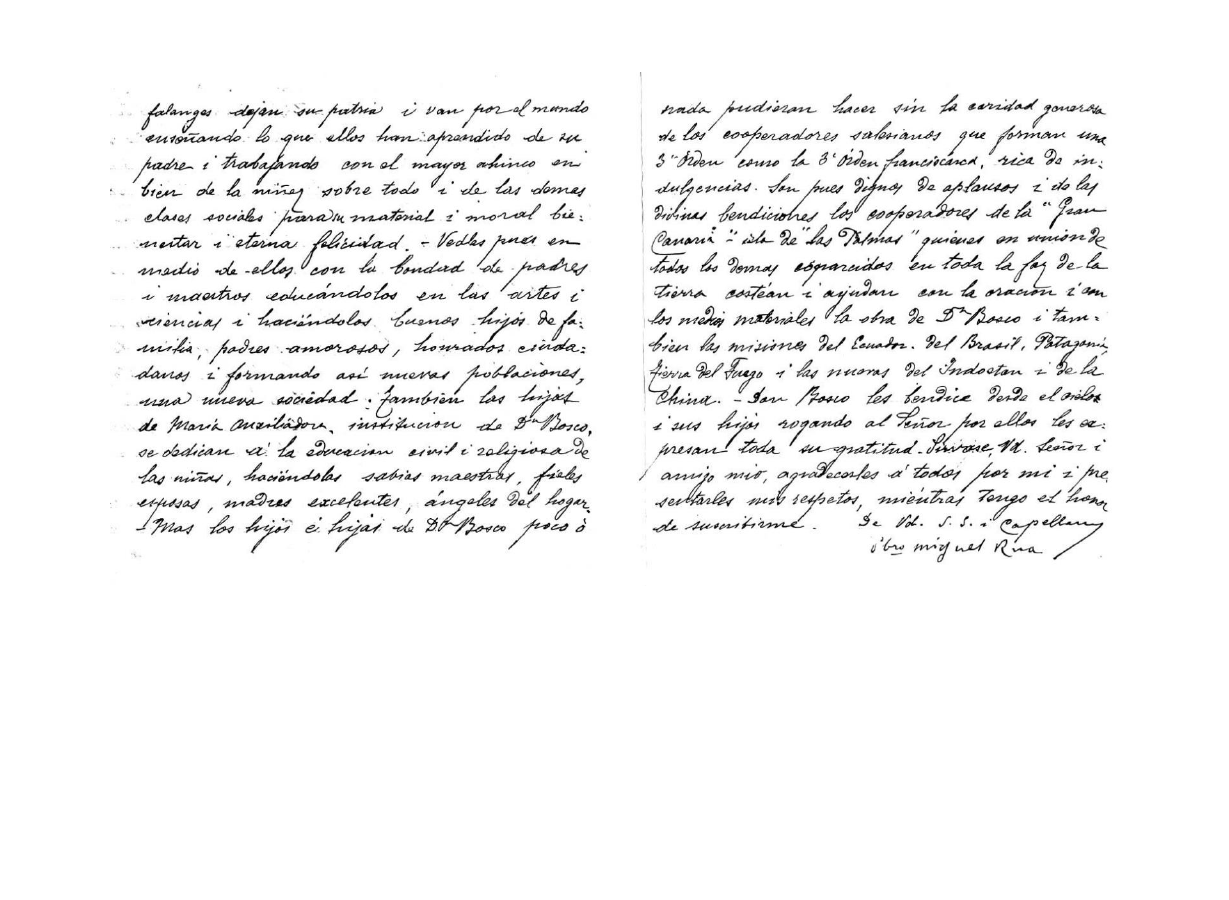 falanges dejan su patria i van por el mundo
enseñando lo que ellos han aprendido de su
padre i trabajando con el mayor ahinco en
bien de la niñez sobre todo i de las demas
clases sociales para su material i moral bie=
nestar i eterna felicidad. - Vedles pues en
medio de ellos con la bondad de padres
i maestros educándolos en las artes i
ciencias i haciéndolos buenos hijos de fa=
milia, padres amorosos, honrados ciuda=
danos i formando así nuevas poblaciones,
una nueva sociedad. Tambien las hijas
de María Auxiliadora, institucion de Dn Bosco,
se dedican á la educacion civil i religiosa de
las niñas, haciéndolas sabias maestras, fieles
esposas, madres excelentes, ángeles del hogar.
- Mas los hijos é hijas de Dn Bosco poco ó
nada pudieran hacer sin la caridad generosa
de los cooperadores salesianos que forman una
3ª Orden como la 3ª Orden franciscana, rica de in=
dulgencias. Son pues dignos de aplausos i de las
divinas bendiciones los cooperadores de la "Gran
Canaria" - isla de "las Palmas" quienes en union de
todos los demas esparcidos en toda la faz de la
tierra costéan i ayudan con la oracion i con
los medios materiales la obra de Dn Bosco i tam=
bien las misiones del Ecuador, del Brasil, Patagonia,
tierra del Fuego i las nuevas del Indostan i de la
China. - Don Bosco les bendice desde el cielo
i sus hijos rogando al Señor por ellos les ex=
presan toda su gratitud. Sirvase, Vd. Señor i
amigo mio, agradecerles á todos por mi i pre
sentarles mis respetos, miéntras tengo el honor
de suscribirme. De Vd. S. S. i Capellan
Pbro Miguel Rua